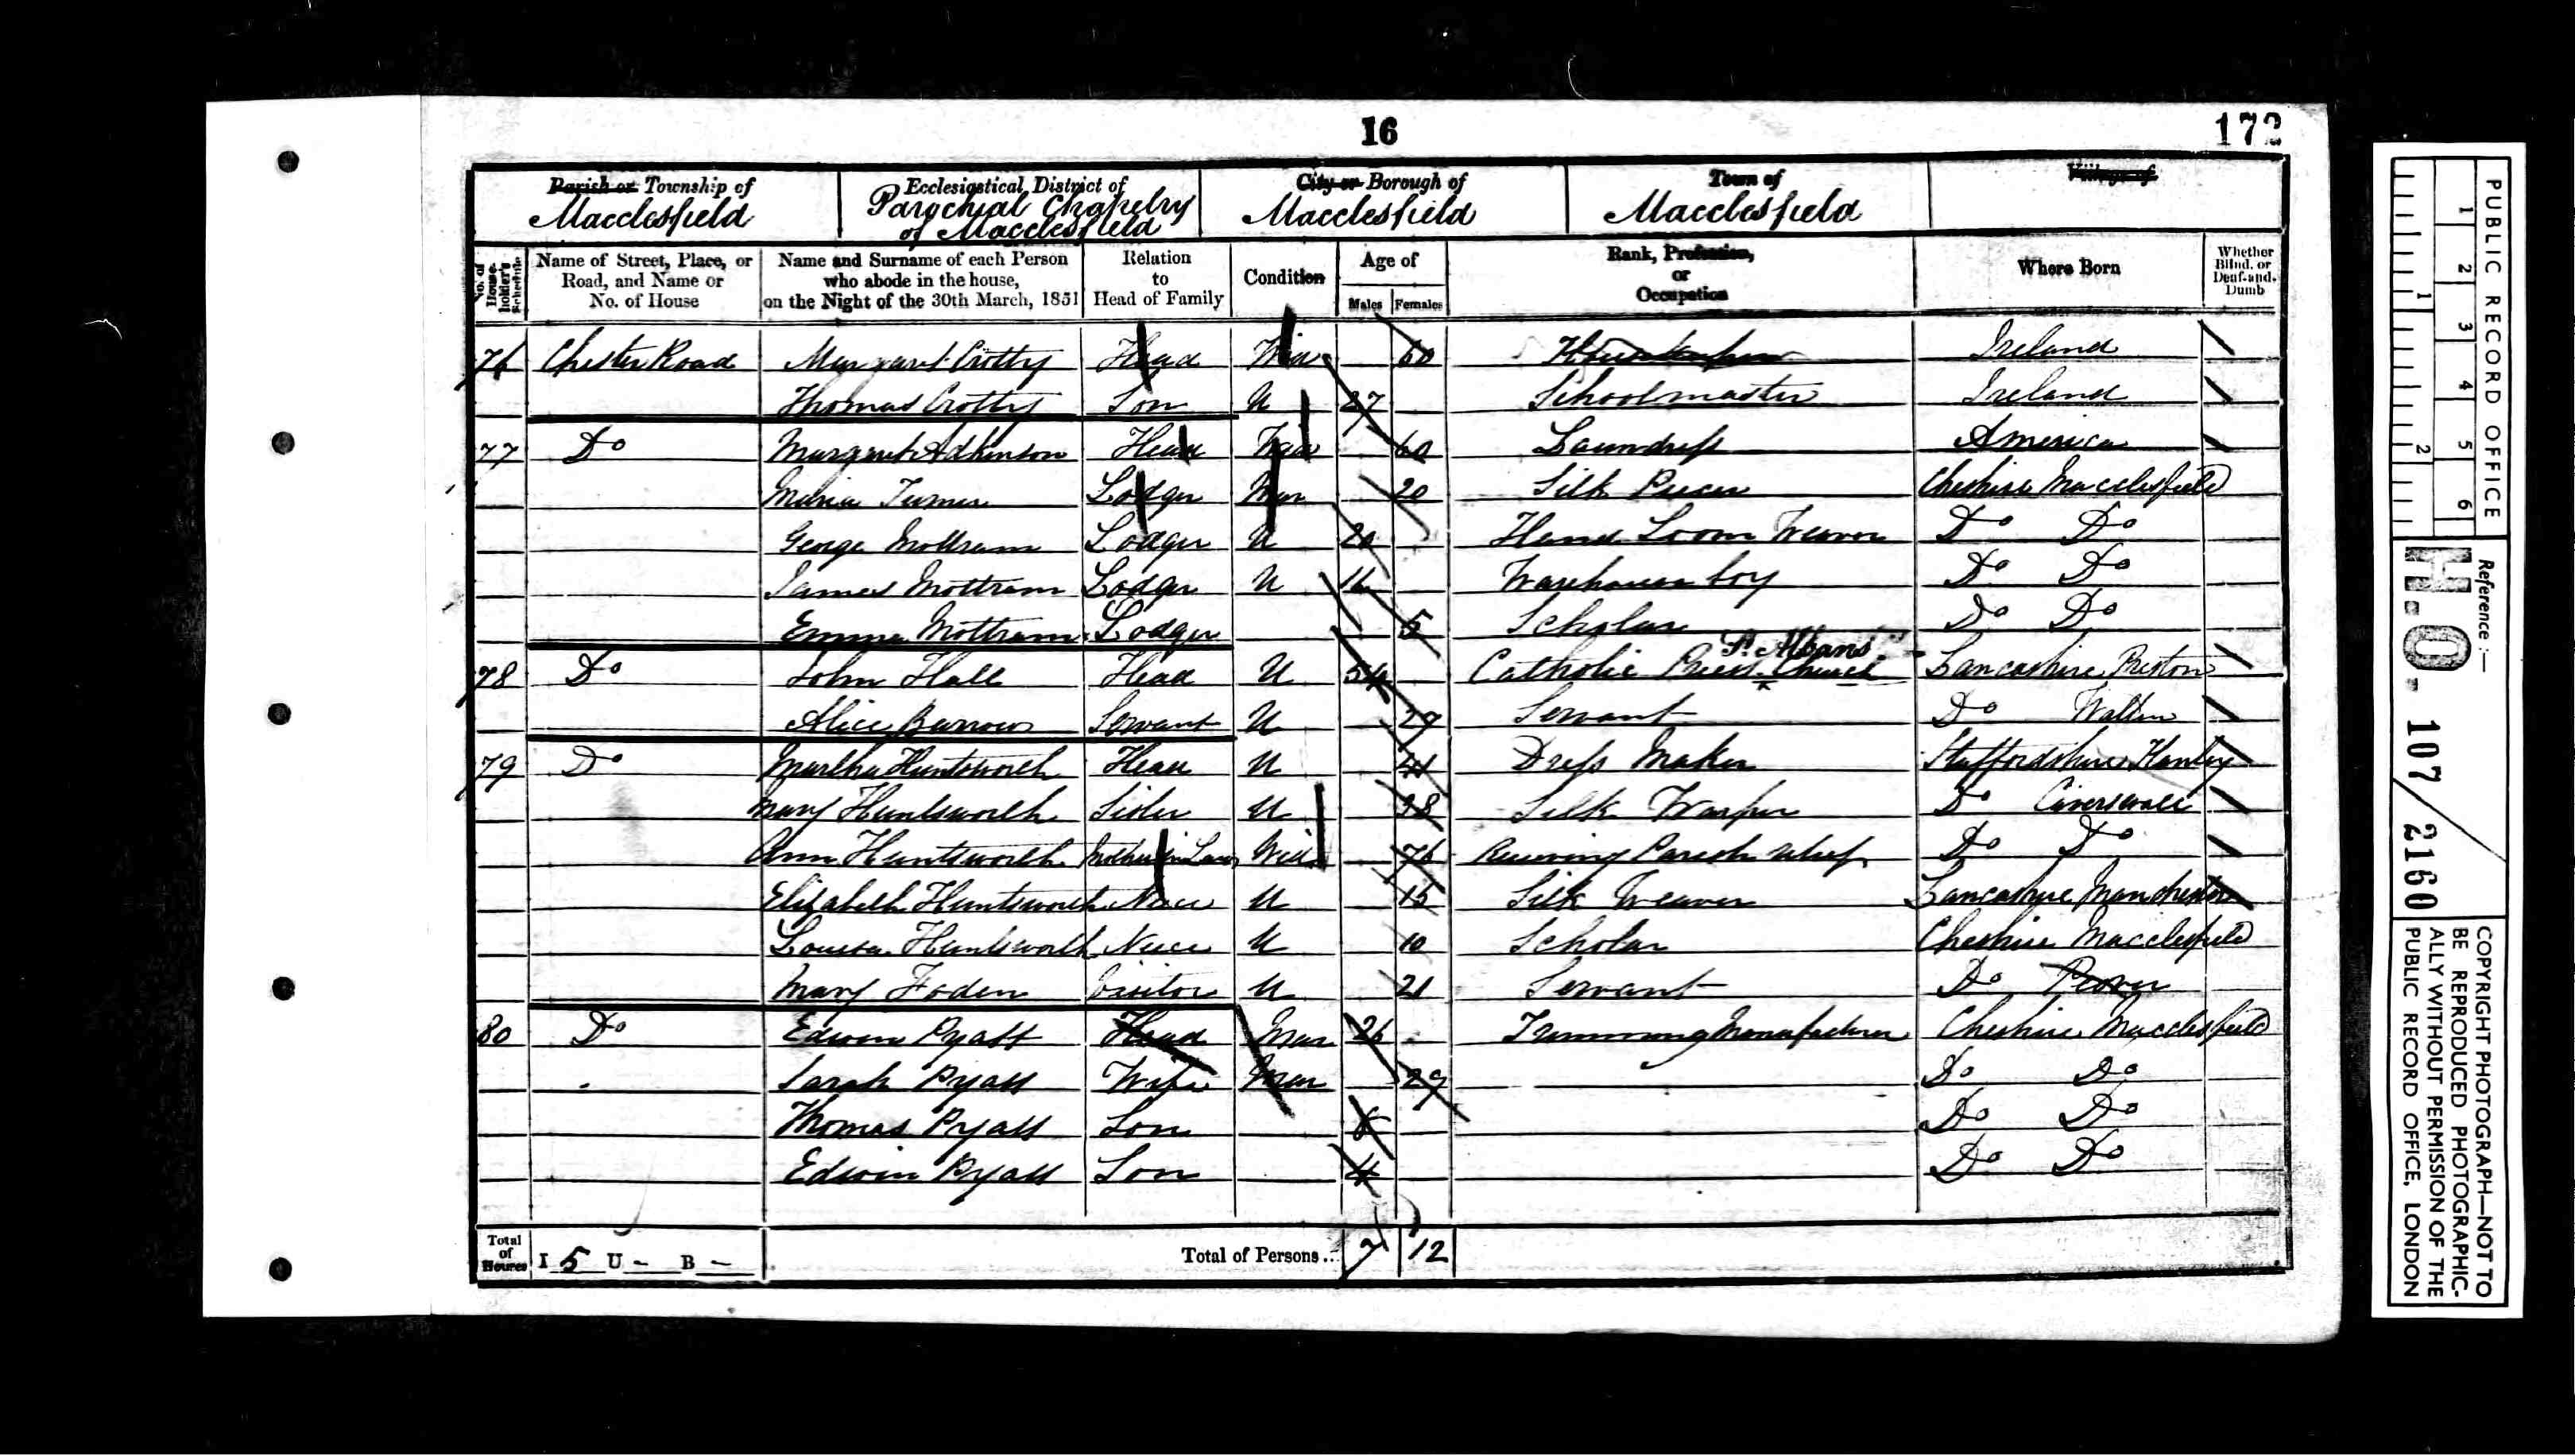 16
172
Parish or Township of
Macclesfield
Ecclesiastical District of
Parochial Chapelry
of Macclesfield
City or Borough of
Macclesfield
Town of
Macclesfield
Village of
No. of House-holder's Schedule
Name of Street, Place, or Road, and Name or No. of House
Name and Surname of each Person who abode in the house, on the Night of the 30th March, 1851
Relation to Head of Family
Condition
Age of
Males Females
Rank, Profession, or Occupation
Where Born
Whether Blind, or Deaf-and-Dumb
76 Chester Road Margaret Crotty Head Wid 60 Housekeeper Ireland
Thomas Crotty Son U 27 Schoolmaster Ireland
77 Do Margaret Adkinson Head Wid 60 Laundress America
Maria Turner Lodger Mar 20 Silk Piecer Cheshire Macclesfield
George Mottram Lodger U 20 Hand Loom Weaver Do Do
James Mottram Lodger U 16 Warehouse boy Do Do
Emma Mottram Lodger 5 Scholar Do Do
78 Do John Hall Head U 54 Catholic Priest St. Albans Church Lancashire Preston
Alice Burrow Servant U 27 Servant Do Walton
79 Do Martha Huntsworth Head U 41 Dress Maker Staffordshire Hanley
Mary Huntsworth Sister U 38 Silk Warper Do Caverswall
Ann Huntsworth Mother in Law Wid 76 Receiving Parish relief Do Do
Elizabeth Huntsworth Niece U 15 Silk Weaver Lancashire Manchester
Louisa Huntsworth Niece U 10 Scholar Cheshire Macclesfield
Mary Foden Visitor U 21 Servant Do
80 Do Edwin Pyatt Head Mar 26 Trimming Manufacturer Cheshire Macclesfield
Sarah Pyatt Wife Mar 29 Do Do
Thomas Pyatt Son Do Do
Edwin Pyatt Son 4 Do Do
Total of Houses I 5 U - B -
Total of Persons.. 7 12
PUBLIC RECORD OFFICE
1 2 3 4 5 6
1 2
Reference:-
H.O. 107/2160
COPYRIGHT PHOTOGRAPH—NOT TO
BE REPRODUCED PHOTOGRAPHIC-
ALLY WITHOUT PERMISSION OF THE
PUBLIC RECORD OFFICE, LONDON